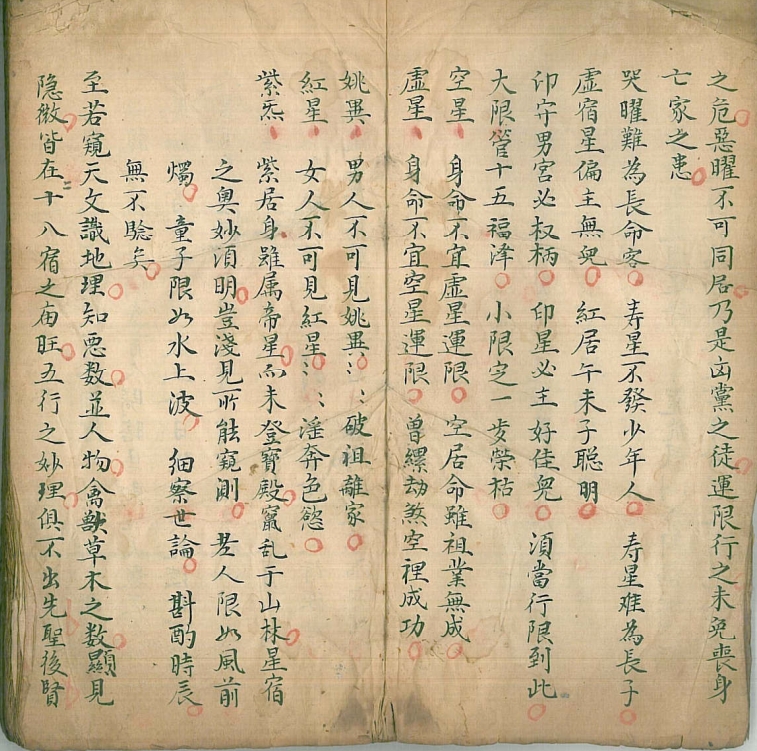 之危惡曜不可同居乃是凶黨之徒運限行之未免喪身
亡家之患
哭曜難為長命客 寿星不發少年人 寿星难為長子
虚宿星偏主無皃 紅居午未子聪明
印守男宮必权柄 印星必主好佳皃 湏當行限到此
大限管十五福泽 小限定一步荣枯
空星 身命不宜虚星運限 空居命雖祖業無成
虚星 身命不宜空星運限 曾纙劫煞空裡成功
姚異 男人不可見姚異〻〻破祖離家
紅星 女人不可見紅星〻〻淫奔色慾
紫炁 紫居身雖属帝星而未登寶殿竄乱于山林星宿
之奥妙湏明豈淺見所能窺測 老人限如風前
燭 童子限如水上波 細察世論 斟酌時辰
無不驗矣
至若窺天文識地理知悪数並人物禽獸草木之数顯見
隐微皆在十八宿之庙旺五行之妙理俱不出先聖後賢